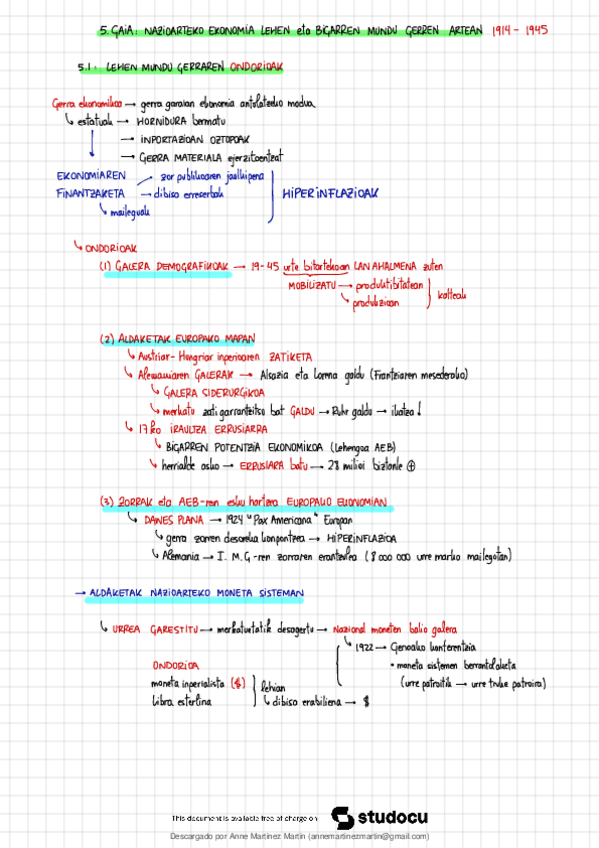 5. GAIA: NAZIOARTEKO EKONOMIA LEHEN eta BIGARREN MUNDU GERREN ARTEAN 1914 - 1945
5.1: LEHEN MUNDU GERRAREN ONDORIOAK
Gerra ekonomikoa → gerra garaian ekonomia antolatzeko modua
↳ estatuak → HORNIDURA bermatu
→ INPORTAZIOAN OZTOPOAK
→ GERRA MATERIALA ejerzitoentzat
EKONOMIAREN FINANTZAKETA
zor publikoaren jaulkipena
→ dibisa erreserbak
↳ maileguak
HIPERINFLAZIOAK
↳ ONDORIOAK
(1) GALERA DEMOGRAFIKOAK → 19-45 urte bitartekoan LAN AHALMENA zuten
MOBILIZATU → produktibitatean
↳ produkzioan
kalteak
(2) ALDAKETAK EUROPAKO MAPAN
↳ Austriar-Hungriar inperioaren ZATIKETA
↳ Alemaniaren GALERAK → Alsazia eta Lorena galdu (Frantziaren mesederako)
↳ GALERA SIDERURGIKOA
↳ merkatu zati garrantzitsu bat GALDU → Ruhr galdu → ikatza!
↳ 17ko IRAULTZA ERRUSIARRA
↳ BIGARREN POTENTZIA EKONOMIKOA (Lehengoa AEB)
↳ herrialde asko → ERRUSIARA batu → 28 milioi biztanle ⊕
(3) ZORRAK eta AEB-ren esku hartzea EUROPAKO EKONOMIAN
↳ DAWES PLANA → 1924 "Pax Americana" Europan
↳ gerra zorren desoreka konpontzea → HIPERINFLAZIOA
↳ Alemania → I. M. G.-ren zorraren erantzulea (8 000 000 urre marko mailegatan)
→ ALDAKETAK NAZIOARTEKO MONETA SISTEMAN
↳ URREA GARESTITU → merkatuetatik desagertu → Nazional moneten balio galera
↳ 1922 → Genoako konferentzia
• moneta sistemen berrantolaketa
(urre patroitik → urre truke patroira)
ONDORIOA
moneta inperialista ($)
libra esterlina
lehian
↳ dibisa erabiliena → $
This document is available free of charge on
studocu
Descargado por Anne Martinez Martin (annemartinezmartin@gmail.com)